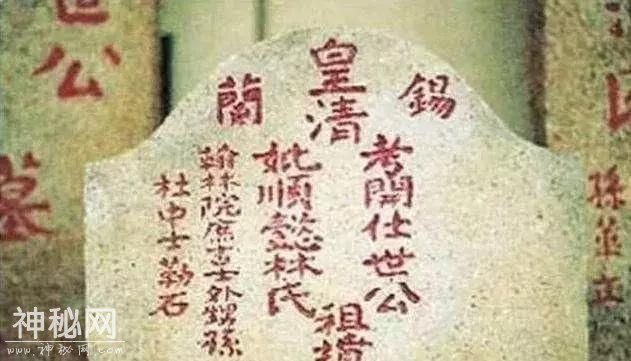 錫蘭
皇清
考開仕世公
妣順懿林氏
祖
翰林院庶吉士外甥孫
杜中士勒石
世公
墓
孫
立
神秘网
WWW.神秘网.COM